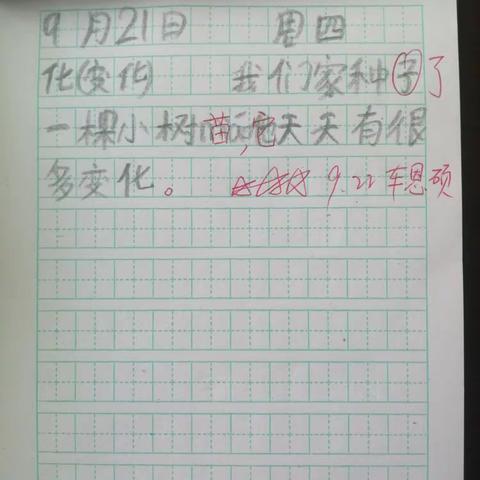 9月21日 周四
化(变化) 我们家种子了
一棵小树苗,它天天有很
多变化。 9.22 车恩硕